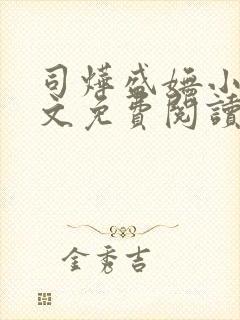 司燁盛嫵小
文免費閱讀
金秀吉